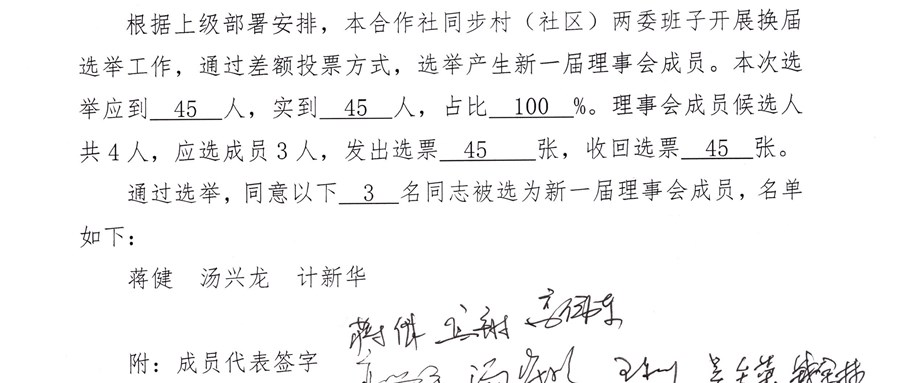 根据上级部署安排，本合作社同步村（社区）两委班子开展换届
选举工作，通过差额投票方式，选举产生新一届理事会成员。本次选
举应到 45 人，实到 45 人，占比 100 %。理事会成员候选人
共4人，应选成员3人，发出选票 45 张，收回选票 45 张。
通过选举，同意以下 3 名同志被选为新一届理事会成员，名单
如下：
蒋健 汤兴龙 计新华
附：成员代表签字